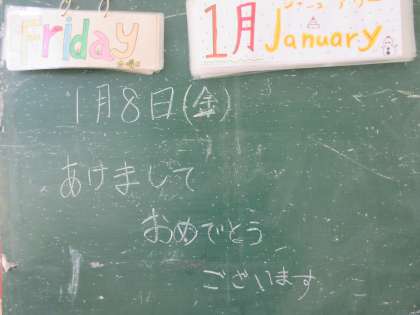 Friday
ジャニュアリー
1月 January
1月8日(金)
あけまして
おめでとう
ございます